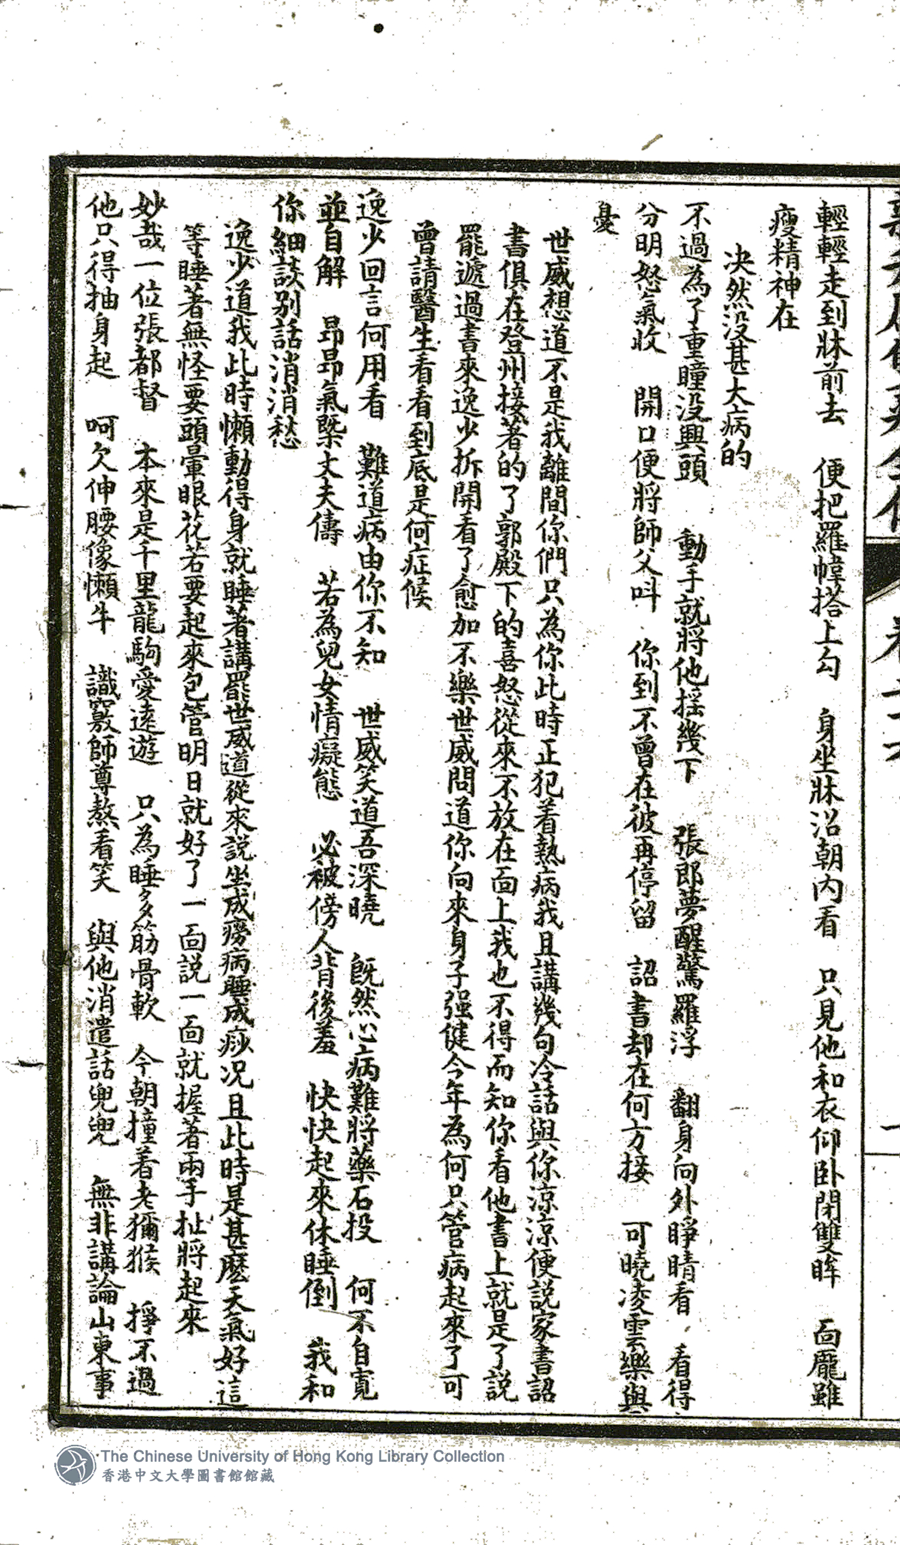 輕輕走到牀前去　便把羅幃搭上勾　身坐牀沿朝內看　只見他和衣仰卧閉雙眸　面龐雖
瘦精神在
决然沒甚大病的
不過為了重瞳没興頭　動手就將他揺幾下　張郎夢醒驚羅浮　翻身向外睜睛看　看得
分明怒氣收　開口便將師父呌　你到不曾在彼再停留　詔書却在何方接　可曉凌雲樂與
憂
世威想道不是我離間你們只為你此時正犯着熱病我且講幾句冷話與你涼涼便説家書詔
書俱在登州接著的了郭殿下的喜怒從來不放在面上我也不得而知你看他書上就是了説
罷遞過書來逸少拆開看了愈加不樂世威問道你向來身子强健今年為何只管病起來了可
曾請醫生看看到底是何症候
逸少回言何用看　難道病由你不知　世威笑道吾深曉　既然心病難將藥石投　何不自寬
並自解　昂昂氣槩丈夫儔　若為兒女情癡態　必被傍人背後羞　快快起來休睡倒　我和
你細談别話消消愁
逸少道我此時懶動得身就睡著講罷世威道從來説坐成癆病睡成痧况且此時是甚麽天氣好這
等睡著無怪要頭暈眼花若要起來包管明日就好了一面説一面就握著兩手扯將起來
妙哉一位張都督　本來是千里龍駒愛遠遊　只為睡多筋骨軟　今朝撞着老獼猴　掙不過
他只得抽身起　呵欠伸腰像懶牛　識竅師尊熬看笑　與他消遣話兜兜　無非講論山東事
The Chinese University of Hong Kong Library Collection
香港中文大學圖書館館藏